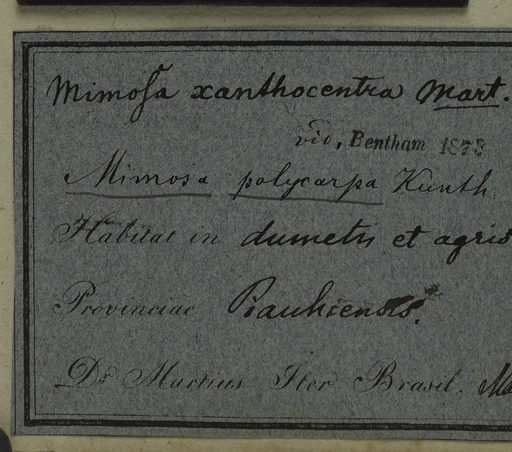 Mimosa xanthocentra Mart.
vid. Bentham 1878
Mimosa polycarpa Kunth
Habitat in dumetis et agris
Provinciae Piauhiensis.
Dr. Martius Iter Brasil.